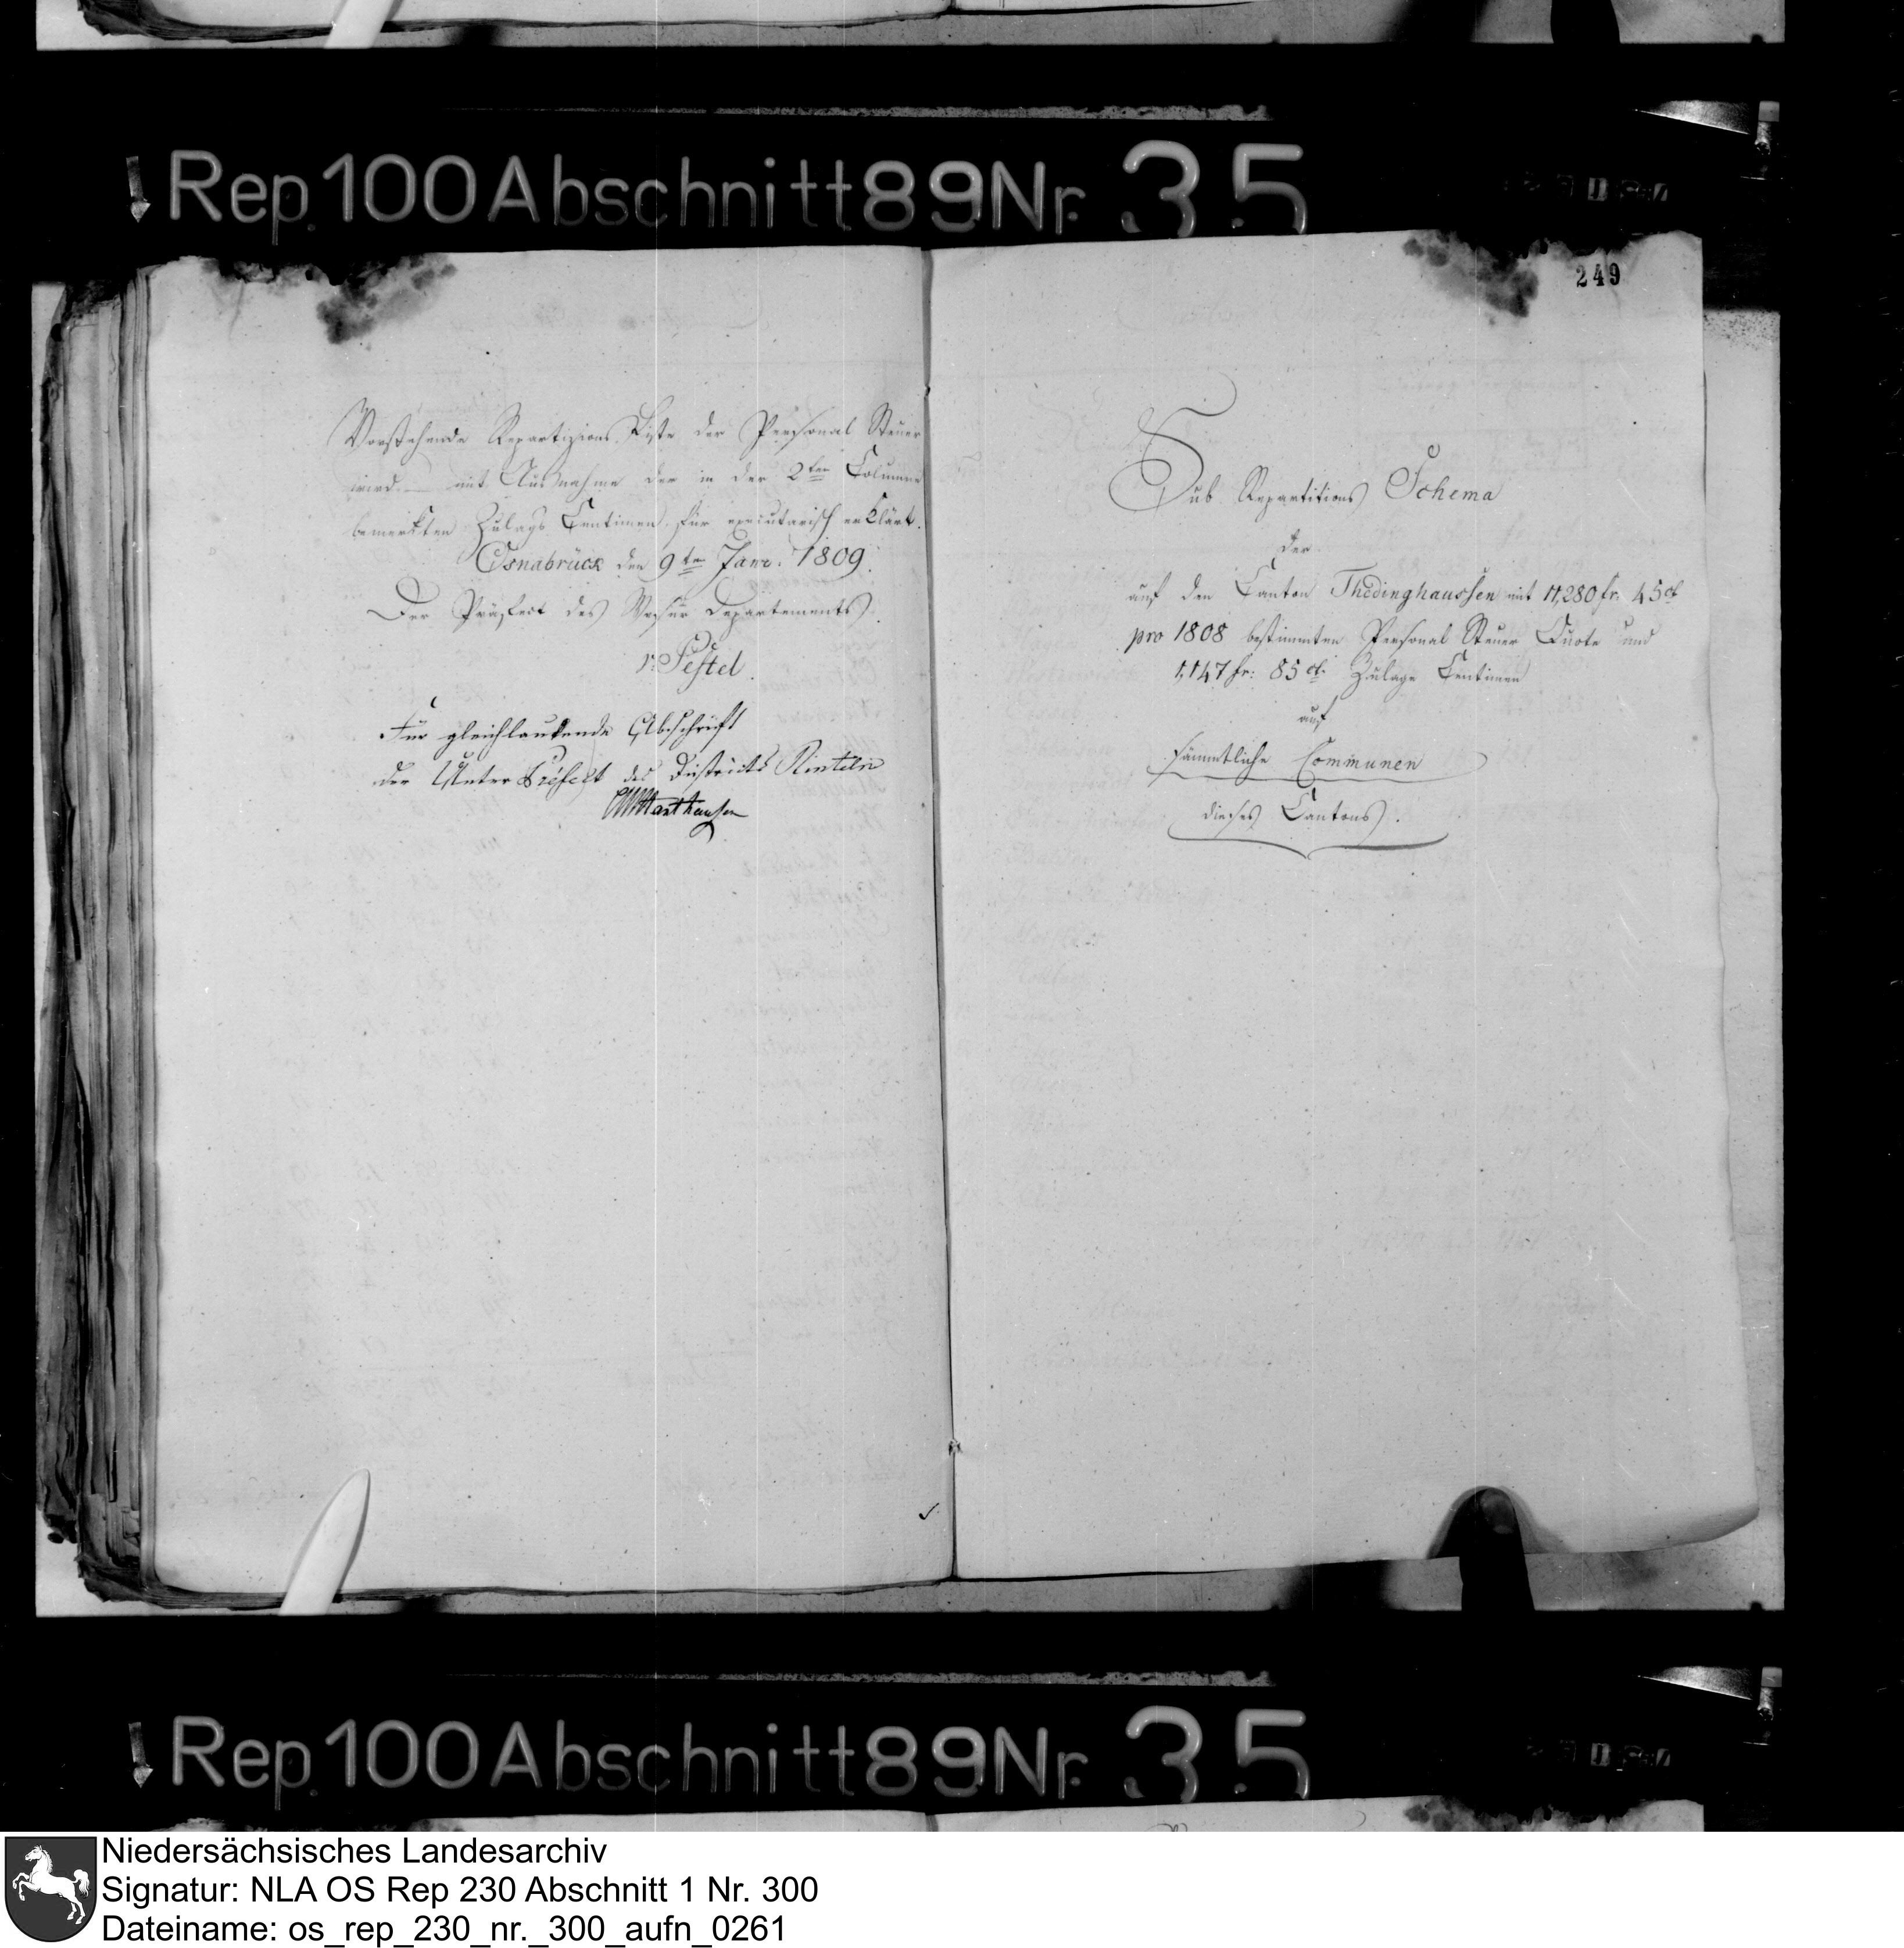 Rep. 100 Abschnitt 89 Nr. 35
Vorstehende Repartizions Liste der Personal Steuer
wird – mit Ausnahme der in der 2ten Columne
bemerkten Zulags Centimen für executorisch erklärt.
Osnabrück den 9ten Janr. 1809.
Der Präfect des Weser Departements.
v. Pestel.
Für gleichlautende Abschrift
der Unter Präfect des Districts Rinteln
249
Sub Repartitions Schema
der
auf den Canton Thedinghaussen mit 11,280 fr. 45 ct
pro 1808 bestimmten Personal Steuer Quote und
1,147 fr: 85 ct. Zulage Centimen
auf
sämmtliche Communen
dieses Cantons.
Rep. 100 Abschnitt 89 Nr. 35
Niedersächsisches Landesarchiv
Signatur: NLA OS Rep 230 Abschnitt 1 Nr. 300
Dateiname: os_rep_230_nr._300_aufn_0261